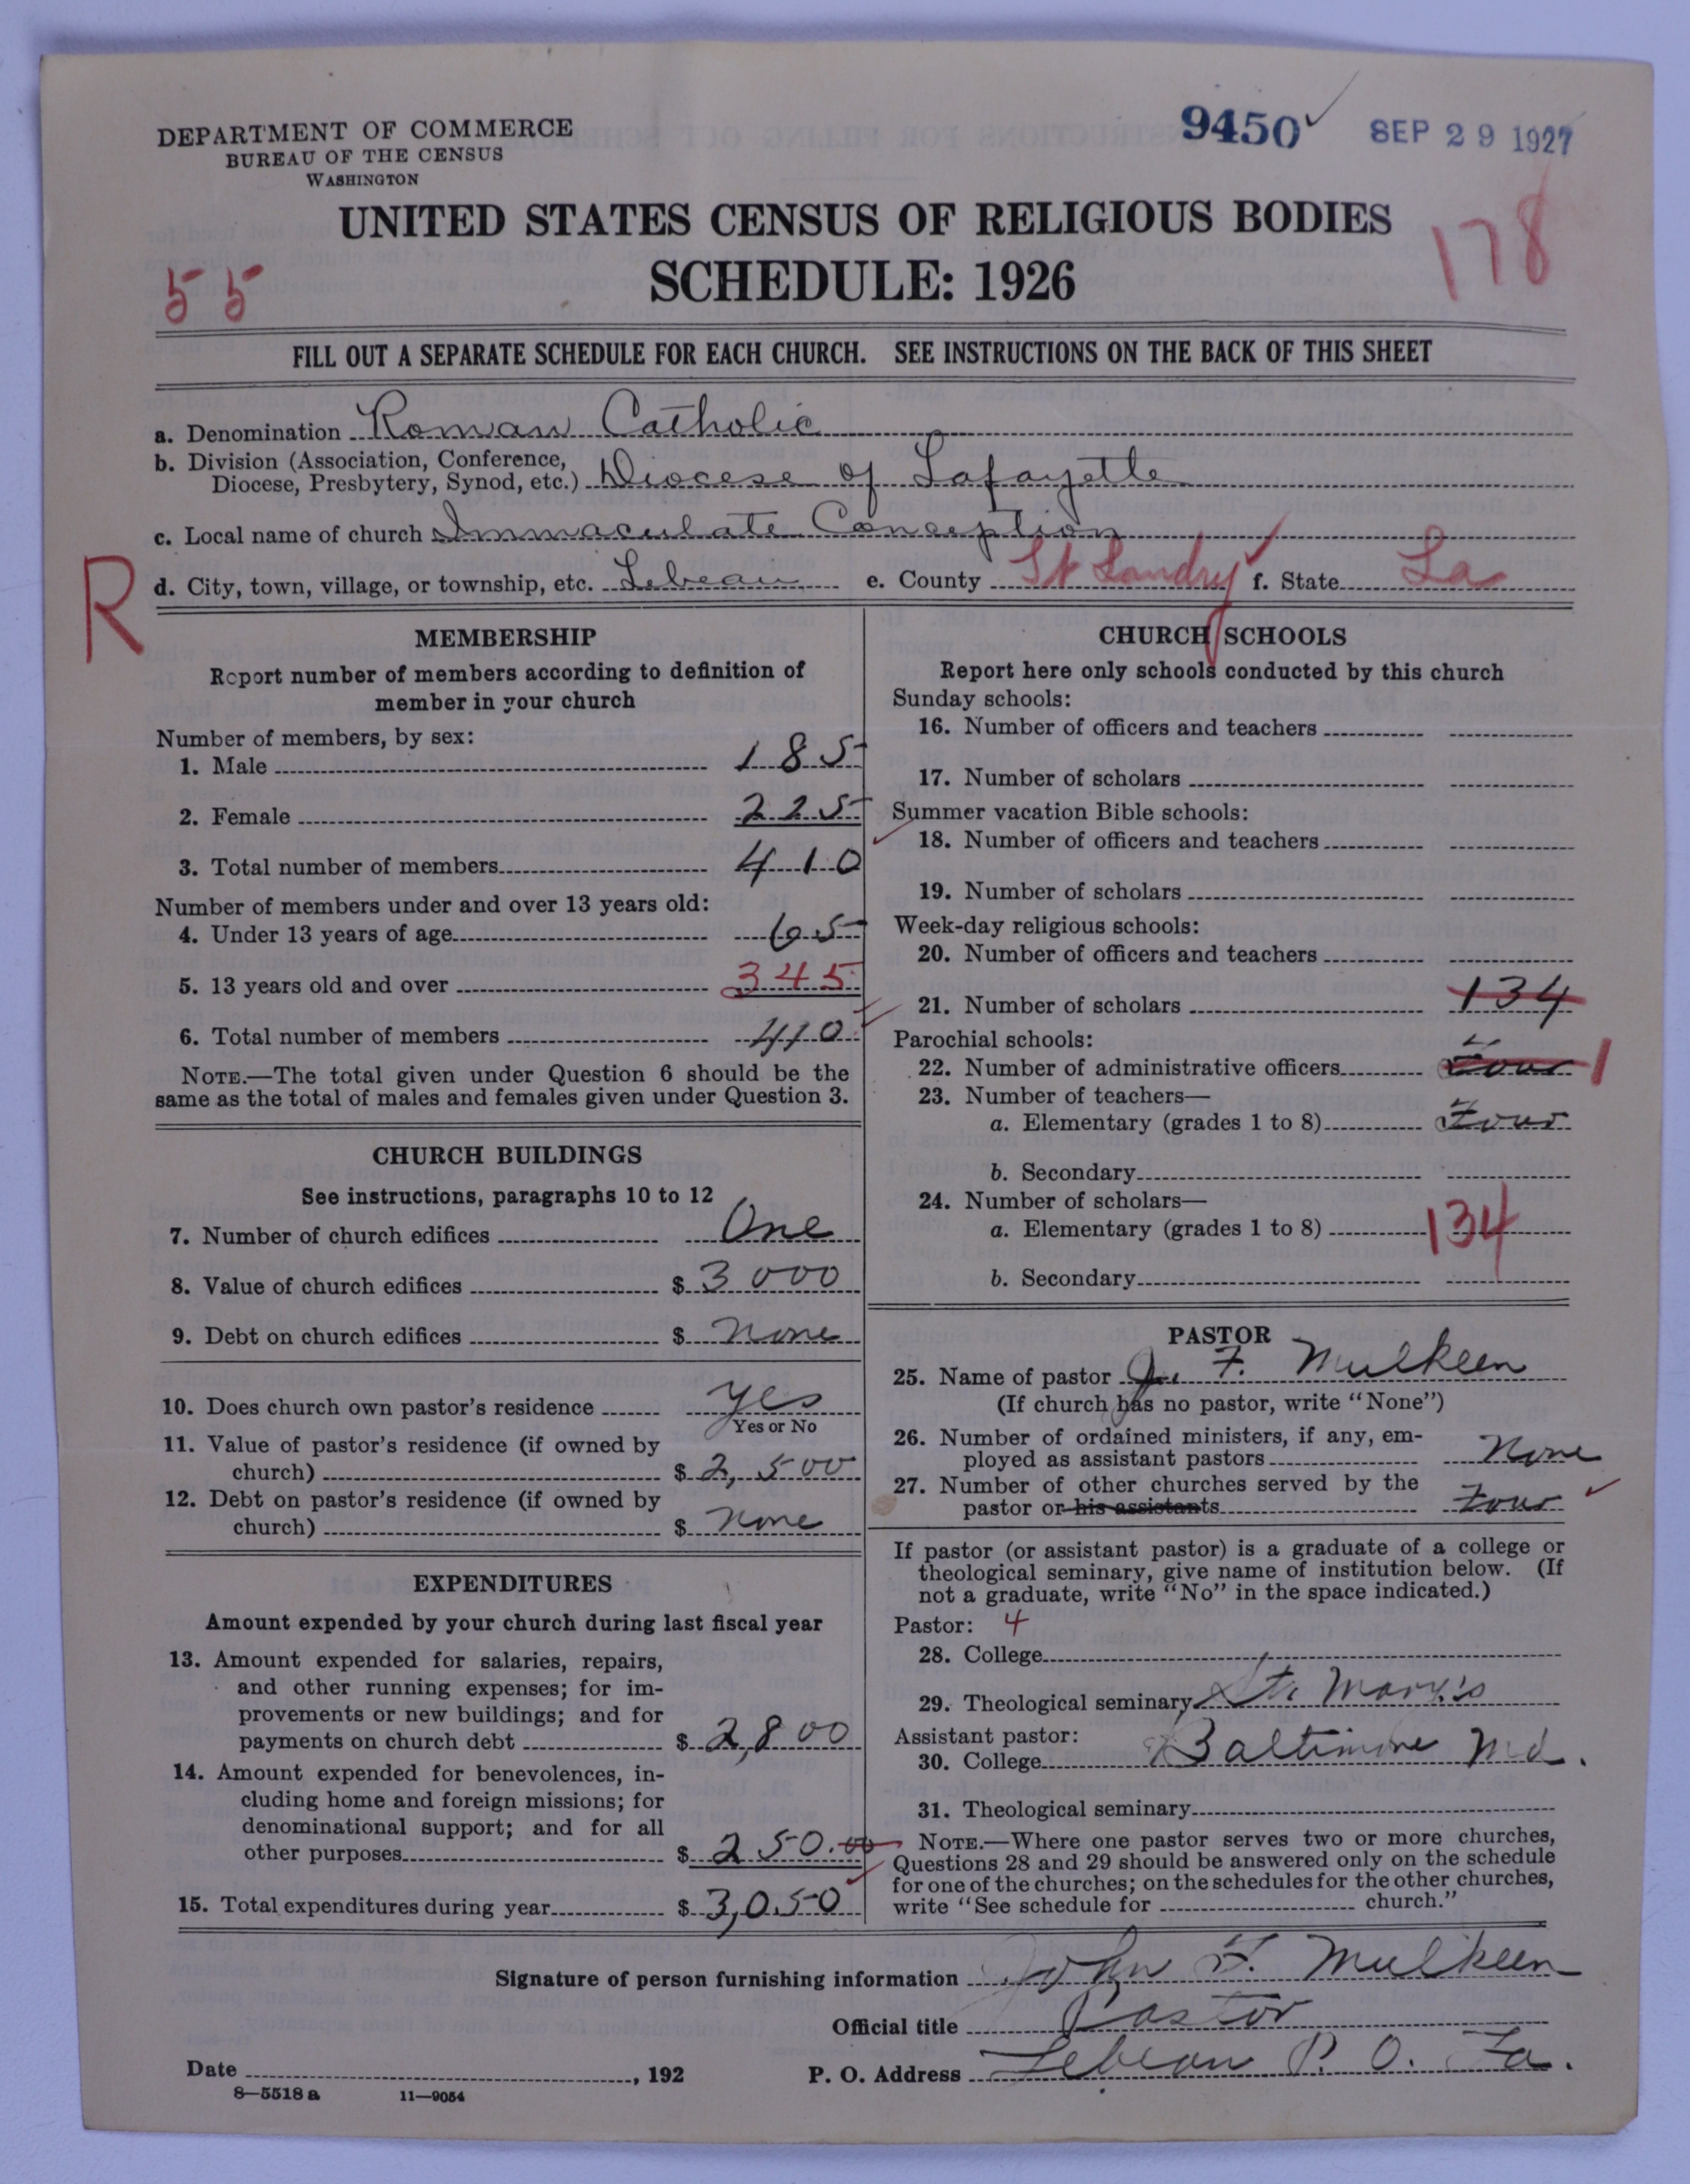 9450 ✓ SEP 29 1927
DEPARTMENT OF COMMERCE
BUREAU OF THE CENSUS
WASHINGTON
UNITED STATES CENSUS OF RELIGIOUS BODIES
178
55
SCHEDULE: 1926
FILL OUT A SEPARATE SCHEDULE FOR EACH CHURCH. SEE INSTRUCTIONS ON THE BACK OF THIS SHEET
a. Denomination Roman Catholic
b. Division (Association, Conference,
Diocese, Presbytery, Synod, etc.) Diocese of Lafayette
c. Local name of church Immaculate Conception
R
d. City, town, village, or township, etc. Lebeau e. County St Landry f. State La
MEMBERSHIP
Report number of members according to definition of
member in your church
Number of members, by sex:
1. Male 185
2. Female 225
3. Total number of members 410
Number of members under and over 13 years old:
4. Under 13 years of age 65
5. 13 years old and over 345
6. Total number of members 410
NOTE.—The total given under Question 6 should be the
same as the total of males and females given under Question 3.
CHURCH BUILDINGS
See instructions, paragraphs 10 to 12
7. Number of church edifices One
8. Value of church edifices $ 3000
9. Debt on church edifices $ none
10. Does church own pastor's residence yes
Yes or No
11. Value of pastor's residence (if owned by
church) $ 2,500
12. Debt on pastor's residence (if owned by
church) $ none
EXPENDITURES
Amount expended by your church during last fiscal year
13. Amount expended for salaries, repairs,
and other running expenses; for im-
provements or new buildings; and for
payments on church debt $ 2,800
14. Amount expended for benevolences, in-
cluding home and foreign missions; for
denominational support; and for all
other purposes $ 250.00
15. Total expenditures during year $ 3,050
CHURCH SCHOOLS
Report here only schools conducted by this church
Sunday schools:
16. Number of officers and teachers
17. Number of scholars
Summer vacation Bible schools:
18. Number of officers and teachers
19. Number of scholars
Week-day religious schools:
20. Number of officers and teachers
21. Number of scholars 134
Parochial schools:
22. Number of administrative officers Four 1
23. Number of teachers—
a. Elementary (grades 1 to 8) Four
b. Secondary
24. Number of scholars—
a. Elementary (grades 1 to 8) 134
b. Secondary
PASTOR
25. Name of pastor J. F. Mulkeen
(If church has no pastor, write "None")
26. Number of ordained ministers, if any, em-
ployed as assistant pastors None
27. Number of other churches served by the
pastor or his assistants Four
If pastor (or assistant pastor) is a graduate of a college or
theological seminary, give name of institution below. (If
not a graduate, write "No" in the space indicated.)
Pastor: 4
28. College
29. Theological seminary St. Mary's
Assistant pastor:
30. College Baltimore Md.
31. Theological seminary
NOTE.—Where one pastor serves two or more churches,
Questions 28 and 29 should be answered only on the schedule
for one of the churches; on the schedules for the other churches,
write "See schedule for church."
Signature of person furnishing information John F. Mulkeen
Official title Pastor
Date , 192 P. O. Address Lebeau P. O. La.
8—5518 a 11—9054